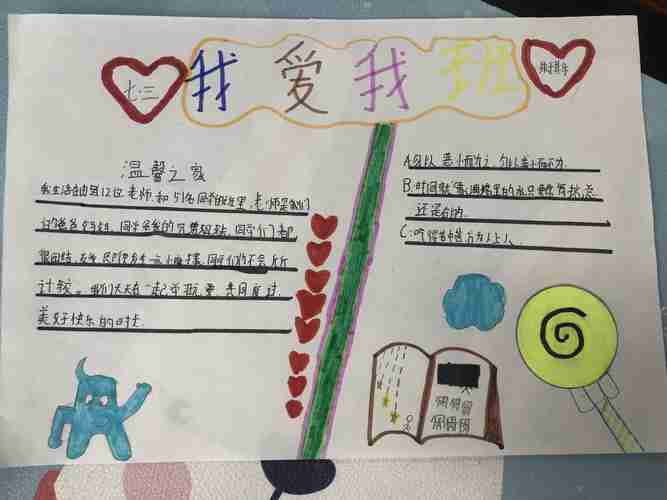 七.三
我爱我班
温馨之家
我生活在由12位老师和51名同学的班里,老师是我们
的爸爸妈妈,同学是我的兄弟姐妹,同学们都
很团结,友爱,即使有一点小摩擦,同学们都不会斤斤
计较。我们天天在一起玩耍,共同度过
美好快乐的时光.
A:勿以恶小而为之,勿以善小而不为.
B:时间就像海绵里的水只要愿挤,总
还是有的.
C:吃得苦中苦方为人上人.